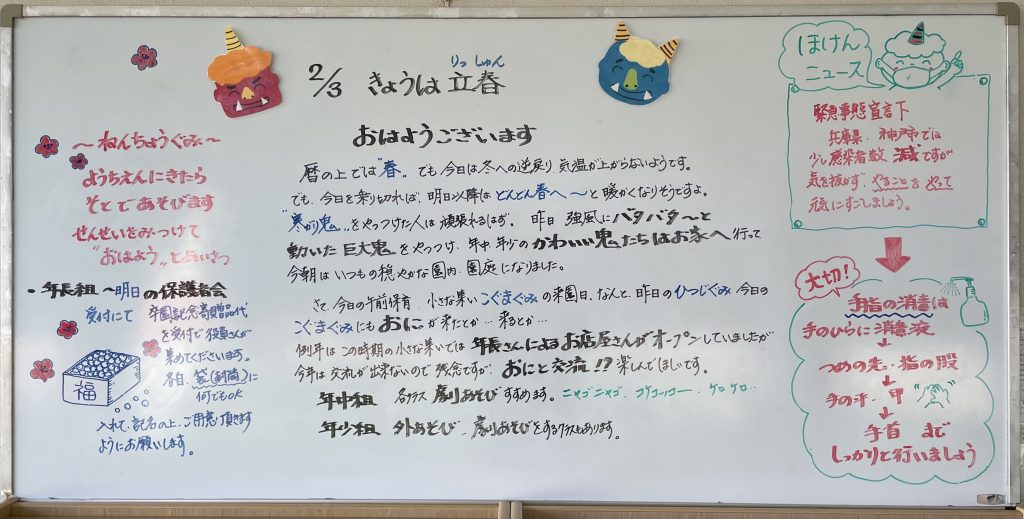 りっしゅん
2/3 きょうは立春
おはようございます
暦の上では"春"。でも今日は冬への逆戻り 気温が上がらないようです。
でも、今日を乗り切れば、明日以降は どんどん春へ〜と暖かくなりそうですよ。
"寒がり鬼"をやっつけた人は頑張れるはず。昨日 強風にバタバタ〜と
動いた巨大鬼をやっつけ、年中、年少のかわいい鬼たちはお家へ行って
今朝はいつもの穏やかな園内、園庭になりました。
さて、今日の午前保育、小さな集い こぐまぐみの来園日、なんと、昨日のひつじぐみ 今日の
こぐまぐみにも おにが来たとか… 来るとか…
例年はこの時期の小さな集いでは 年長さんによるお店屋さんがオープンしていましたが
今年は交流が出来ないので残念ですが、おにと交流!? 楽しんでほしいです。
年中組 各クラス 劇あそびすすめます。ニャゴニャゴ、コケコッコー、ケロケロ…
年少組 外あそび、劇あそびをするクラスもあります。
〜ねんちょうぐみ〜
ようちえんにきたら
そとであそびます
せんせいをみつけて
"おはよう"とあいさつ
・年長組〜明日の保護者会
受付にて 卒園記念寄贈品代
を受付で役員さんが
集めてくださいます。
各自、袋(封筒)に
何でもOK
入れて、記名の上、ご用意頂きます
ようにお願いします。
福
ほけん
ニュース
緊急事態宣言下
兵庫県、神戸市では
少し感染者数 減ですが
気を抜かず、やることをやって
元気にすごしましょう。
大切!
手指の消毒は
手のひらに消毒液
つめの先・指の股
手の平・甲
手首 まで
しっかりと行いましょう